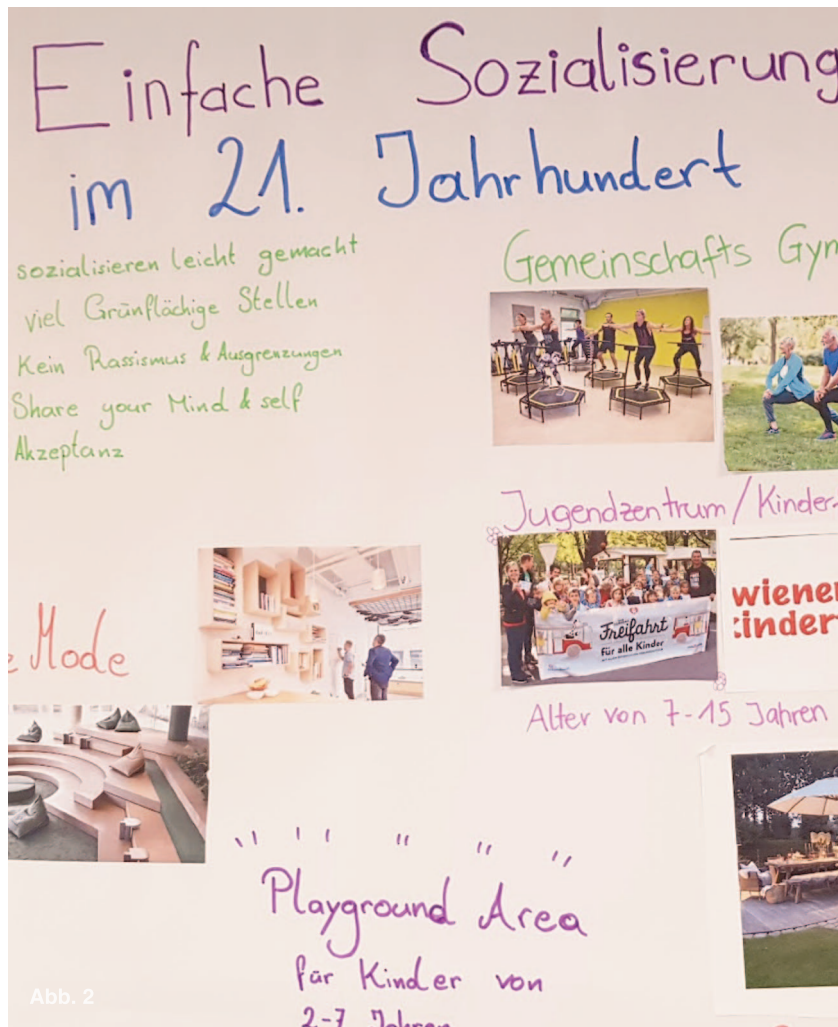 Einfache Sozialisierung
im 21. Jahrhundert
sozialisieren leicht gemacht
viel Grünflächige Stellen
Kein Rassismus & Ausgrenzungen
Share your Mind & self
Akzeptanz
Gemeinschafts Gym
Jugendzentrum/Kinder-
Freifahrt
Für alle Kinder
wiener
kinder
Alter von 7-15 Jahren
Mode
Playground Area
für Kinder von
2-7 Jahren
Abb. 2